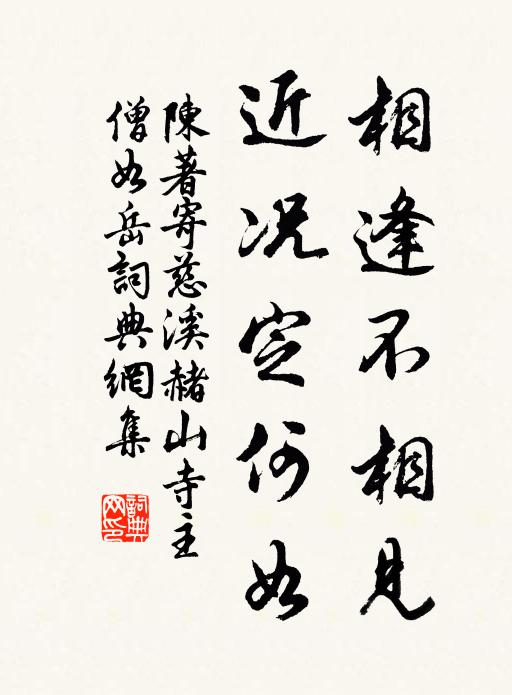 相逢不相見
近况定何如
陳著寄慈溪赭山寺主
僧如岳詞典網集
詞典
网印